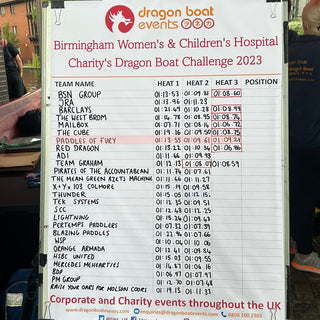 dragon boat
events
Birmingham Women's & Children's Hospital
Charity's Dragon Boat Challenge 2023
TEAM NAME HEAT 1 HEAT 2 HEAT 3 POSITION
BSN GROUP 01:13.53 01:09.81 01:08.60
JRA 01:13.96 01:11.23
BARCLAYS 01:21.49 01:10.28 01:08.99
THE WEST BROM 01:14.78 01:08.95 01:08.74
MAILBOX 01:07.71 01:08.14 01:06.72
THE CUBE 01:19.16 01:09.50 01:08.75
PADDLES OF FURY 01:13.55 01:09.61 01:09.21
RED DRAGON 01:15.22 01:10.34 01:06.86
ADI 01:11.66 01:09.93
TEAM GRAHAM 01:12.13 01:08.07 01:08.59
PIRATES OF THE ACCOUNTABEAN 01:11.76 01:07.61
THE MEAN GREEN AZETS MACHINE 01:11.60 01:11.27
X+Y+103 COLMORE 01:15.14 01:09.58
THUNDER 01:15.15 01:12.15
TEK SYSTEMS 01:12.35 01:09.51
SCC 01:12.48 01:12.25
LIGHTNING 01:15.24 01:09.43
PERTEMPS PADDLERS 01:07.32 01:07.39
BLAZING PADDLES 01:22.96 01:07.66
WSP 01:10.06 01:10.06
ORANGE ARMADA 01:12.41 01:09.84
HSBC UNITED 01:15.03 01:09.55
MERCEDES MEHEARTIES 01:14.87 01:06.16
BDP 01:06.97 01:07.97
PM GROUP 01:12.70 01:07.48
RAISE YOUR OARS FOR MOLSON COORS 01:19.13 01:11.37
Corporate and Charity events throughout the UK
www.dragonboatevents.com enquiries@dragonboatevents.com 0808 100 2303